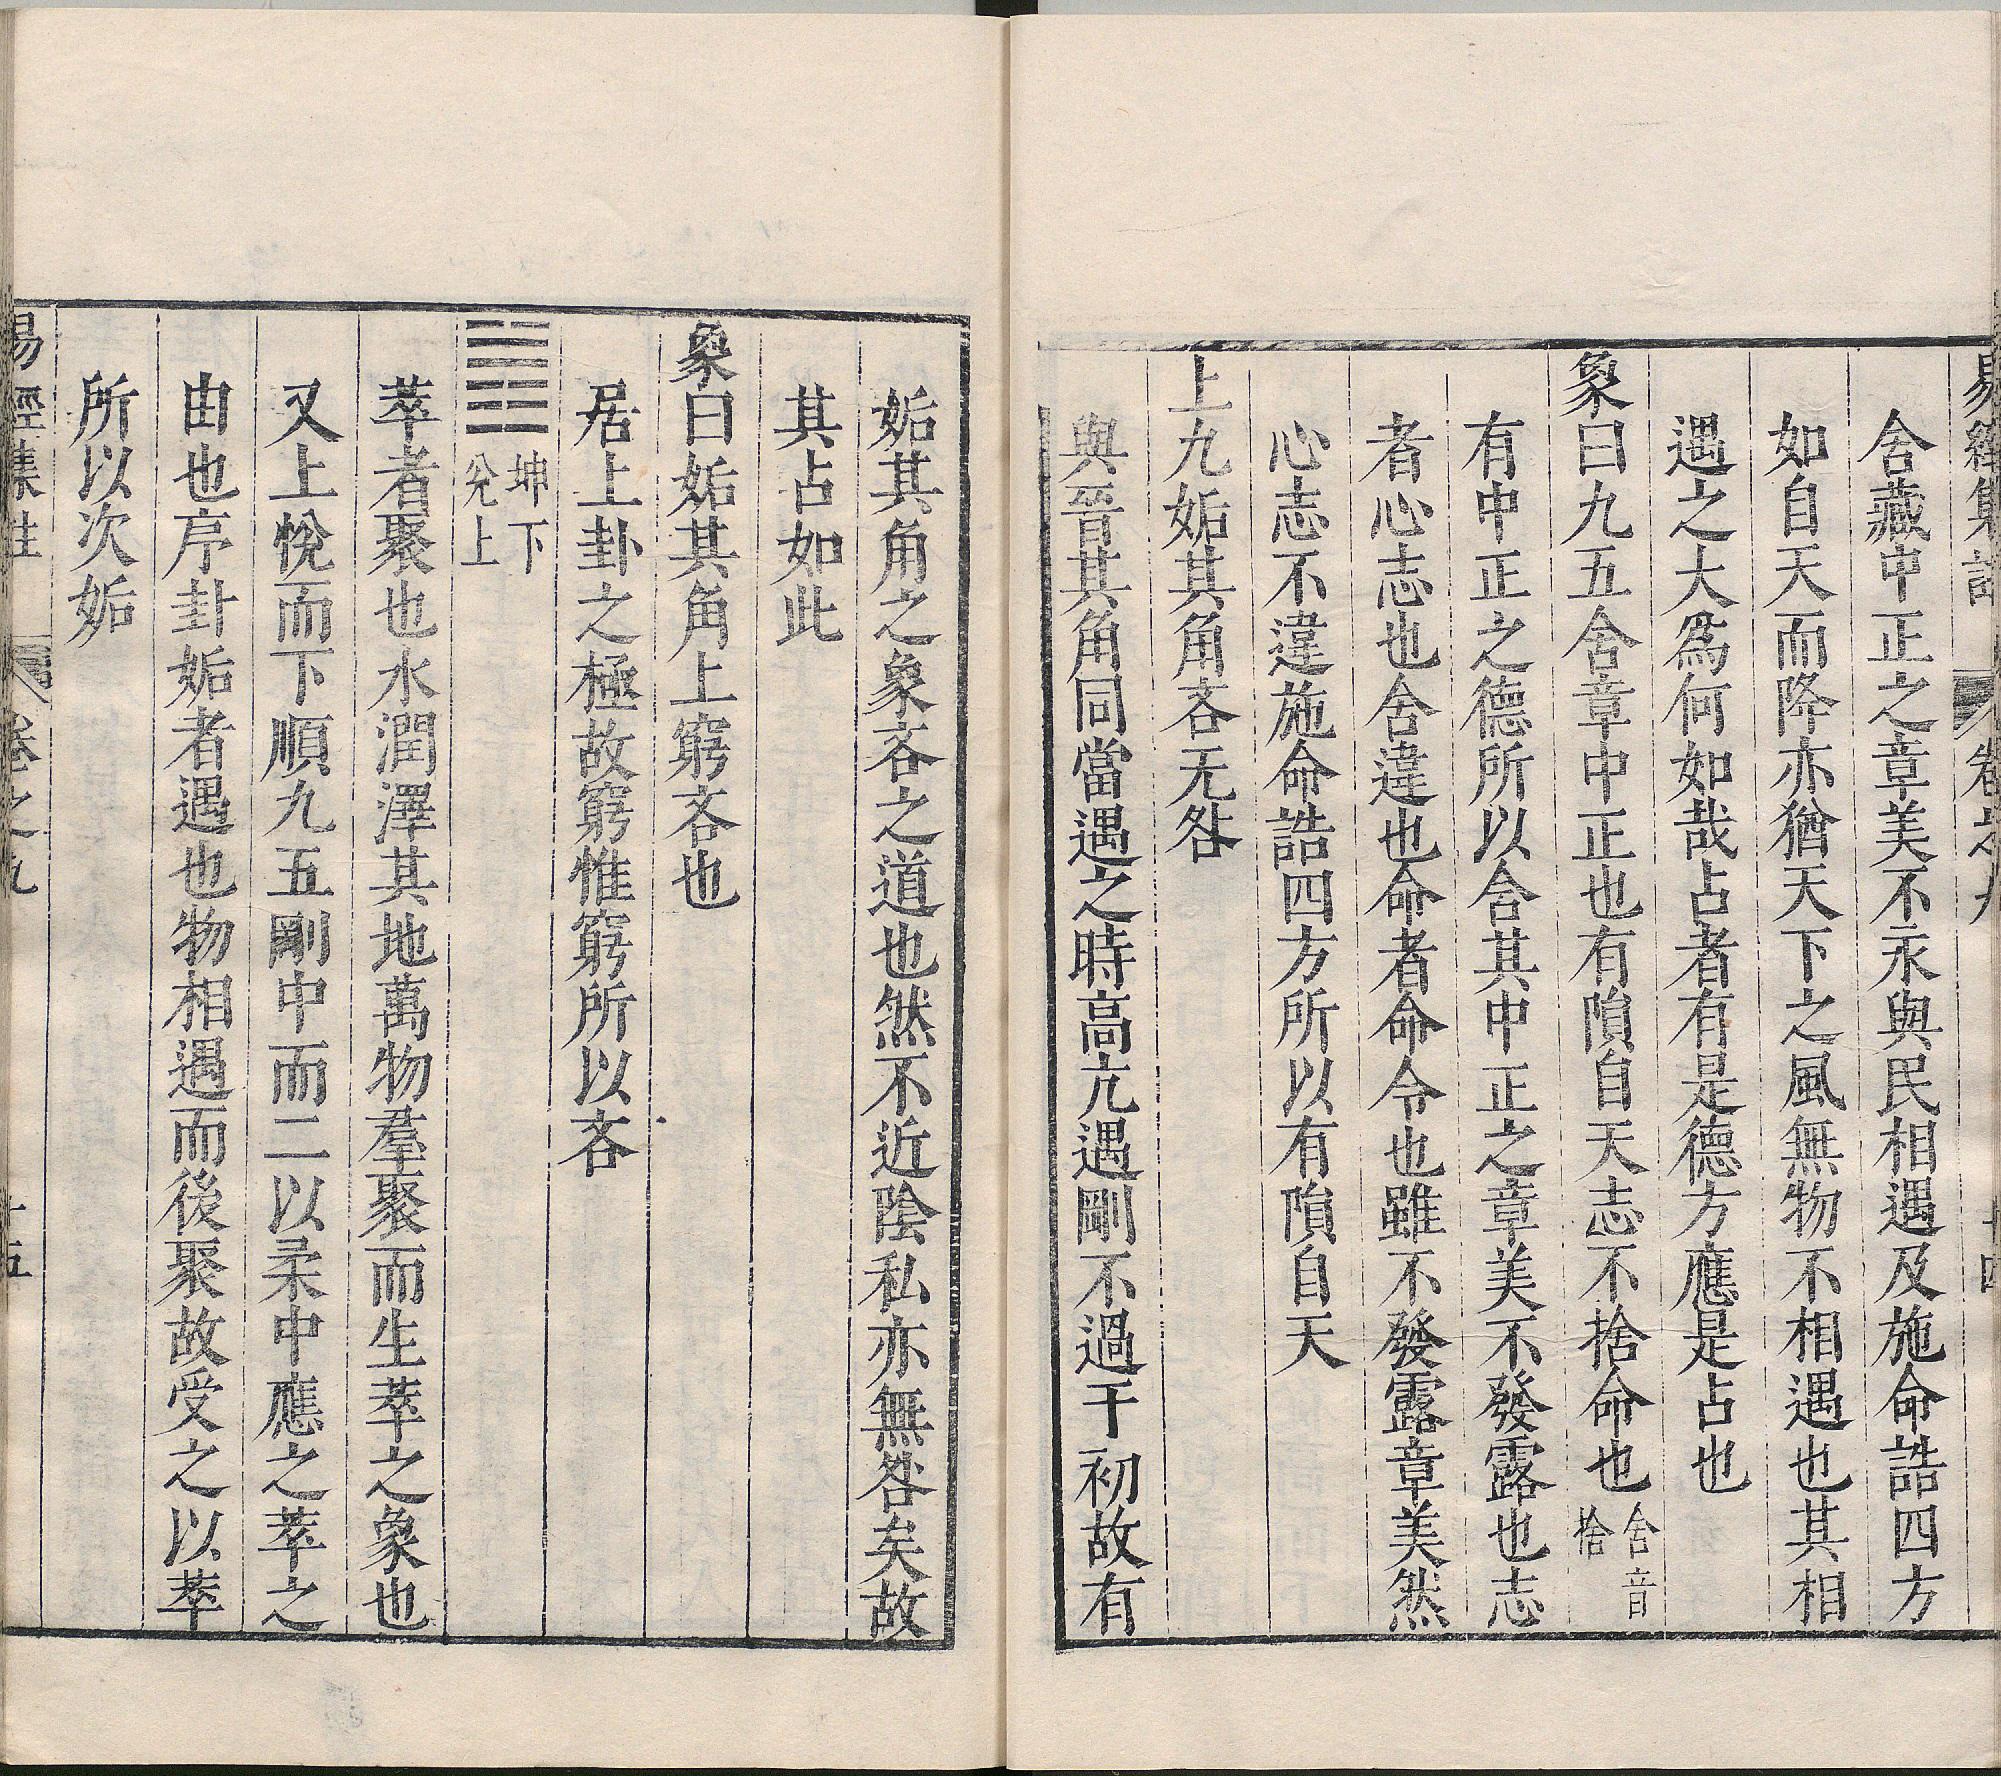 易經集註 卷之九 十四
含藏中正之章美不求與民相遇及施命誥四方
如自天而降亦猶天下之風無物不相遇也其相
遇之大爲何如哉占者有是德方應是占也
象曰九五含章中正也有隕自天志不捨命也舍音捨
有中正之德所以含其中正之章美不發露也志
者心志也舍違也命者命令也雖不發露章美然
心志不違施命誥四方所以有隕自天
上九姤其角吝无咎
與晉其角同當遇之時高亢遇剛不過于初故有
姤其角之象吝之道也然不近陰私亦無咎矣故
其占如此
象曰姤其角上窮吝也
居上卦之極故窮惟窮所以吝
䷬坤下兊上
萃者聚也水潤澤其地萬物羣聚而生萃之象也
又上悅而下順九五剛中而二以柔中應之萃之
由也序卦姤者遇也物相遇而後聚故受之以萃
所以次姤
易經集註 卷之九 十五